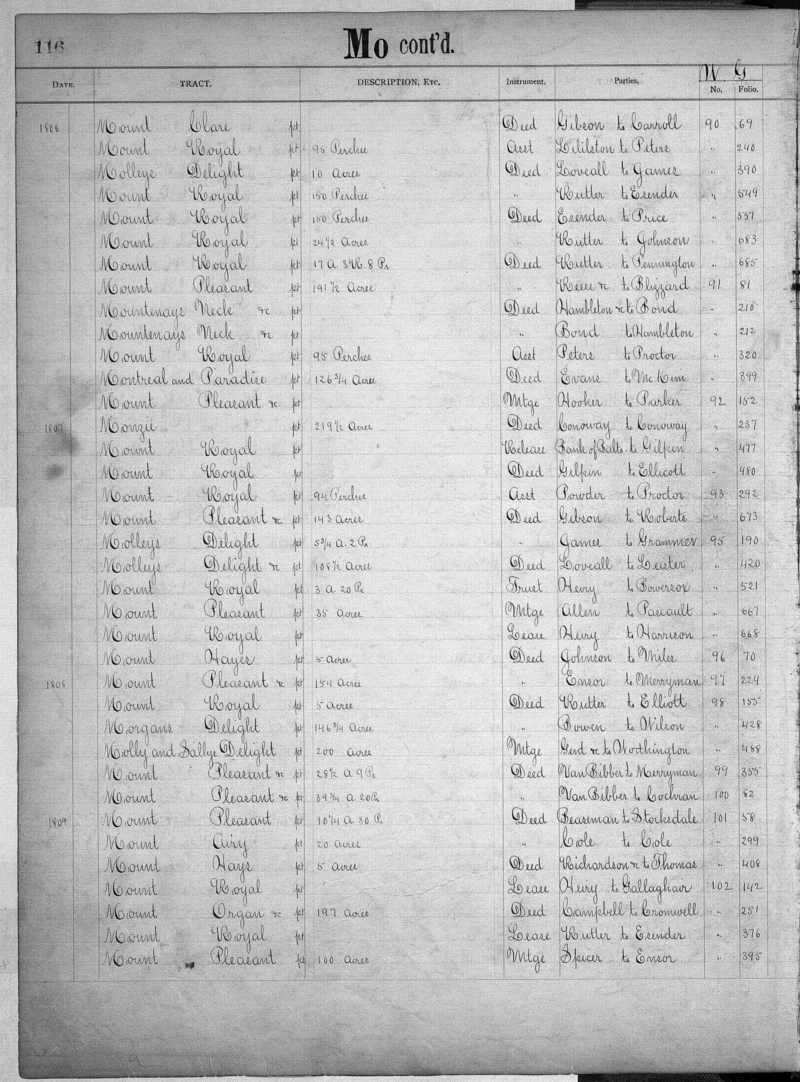 116 Mo cont'd.
W. G
DATE. TRACT. DESCRIPTION, ETC. Instrument. Parties. No. Folio.
1806 Mount Clare pt Deed Gibson to Carroll 90 69
Mount Royal pt 95 Perches Asst to Peters " 240
Molleys Delight pt 10 Acres Deed Loveall to James " 390
Mount Royal pt 150 Perches " Rutter to Esender " 549
Mount Royal pt 150 Perches Deed Esender to Price " 557
Mount Royal pt 24 1/2 Acres " Rutter to Johnson " 683
Mount Royal pt 17 A. 3 R. 8 Ps Deed Rutter to Pennington " 685
Mount Pleasant pt 191 1/2 Acres " Reese &c to Blizzard 91 81
Mountenays Neck &c pt Deed Hambleton &c to Bond " 210
Mountenays Neck &c pt " Bond to Hambleton " 212
Mount Royal pt 95 Perches Asst Peters to Proctor " 320
Montreal and Paradise pt 126 3/4 Acres Deed Evans to McKim " 399
Mount Pleasant &c pt Mtge Hooker to Parker 92 152
1807 Monzu pt 219 1/2 Acres Deed Conoway to Conoway " 237
Mount Royal pt Release Bank of Balto. to Gilpin " 477
Mount Royal pt Deed Gilpin to Ellicott " 480
Mount Royal pt 94 Perches Asst Powder to Proctor 93 292
Mount Pleasant &c pt 143 Acres Deed Gibson to Roberts " 673
Molleys Delight pt 53/4 A. 2 Ps " James to Grammer 95 190
Molleys Delight &c pt 108 1/2 Acres Deed Loveall to Lester " 420
Mount Royal pt 3 A 20 Ps Trust Hevry to Bowersox " 521
Mount Pleasant pt 35 Acres Mtge Allen to Pascault " 667
Mount Royal pt Lease Hevry to Harrison " 668
Mount Hayes pt 5 Acres Deed Johnson to Miles 96 70
1808 Mount Pleasant &c pt 154 Acres " Ensor to Merryman 97 224
Mount Royal pt 5 Acres Deed Rutter to Elliott 98 155
Morgans Delight pt 146 3/4 Acres " Bowen to Wilson " 428
Molly and Sallys Delight pt 200 Acres Mtge Gent &c to Worthington " 488
Mount Pleasant &c pt 28 1/2 A 9 Ps Deed Van Bibber to Merryman 99 355
Mount Pleasant &c pt 39 3/4 A 20 Ps " Van Bibber to Cochran 100 82
1809 Mount Pleasant pt 10 1/4 A 30 Ps Deed Beasman to Stocksdale 101 58
Mount Airy pt 20 Acres " Cole to Cole " 299
Mount Hays pt 5 Acres Deed Richardson &c to Thomas " 408
Mount Royal pt Lease Hevry to Gallaghar 102 142
Mount Organ &c pt 197 Acres Deed Campbell to Cromwell " 251
Mount Royal pt Lease Rutter to Esender " 376
Mount Pleasant pt 100 Acres Mtge Spicer to Ensor " 395